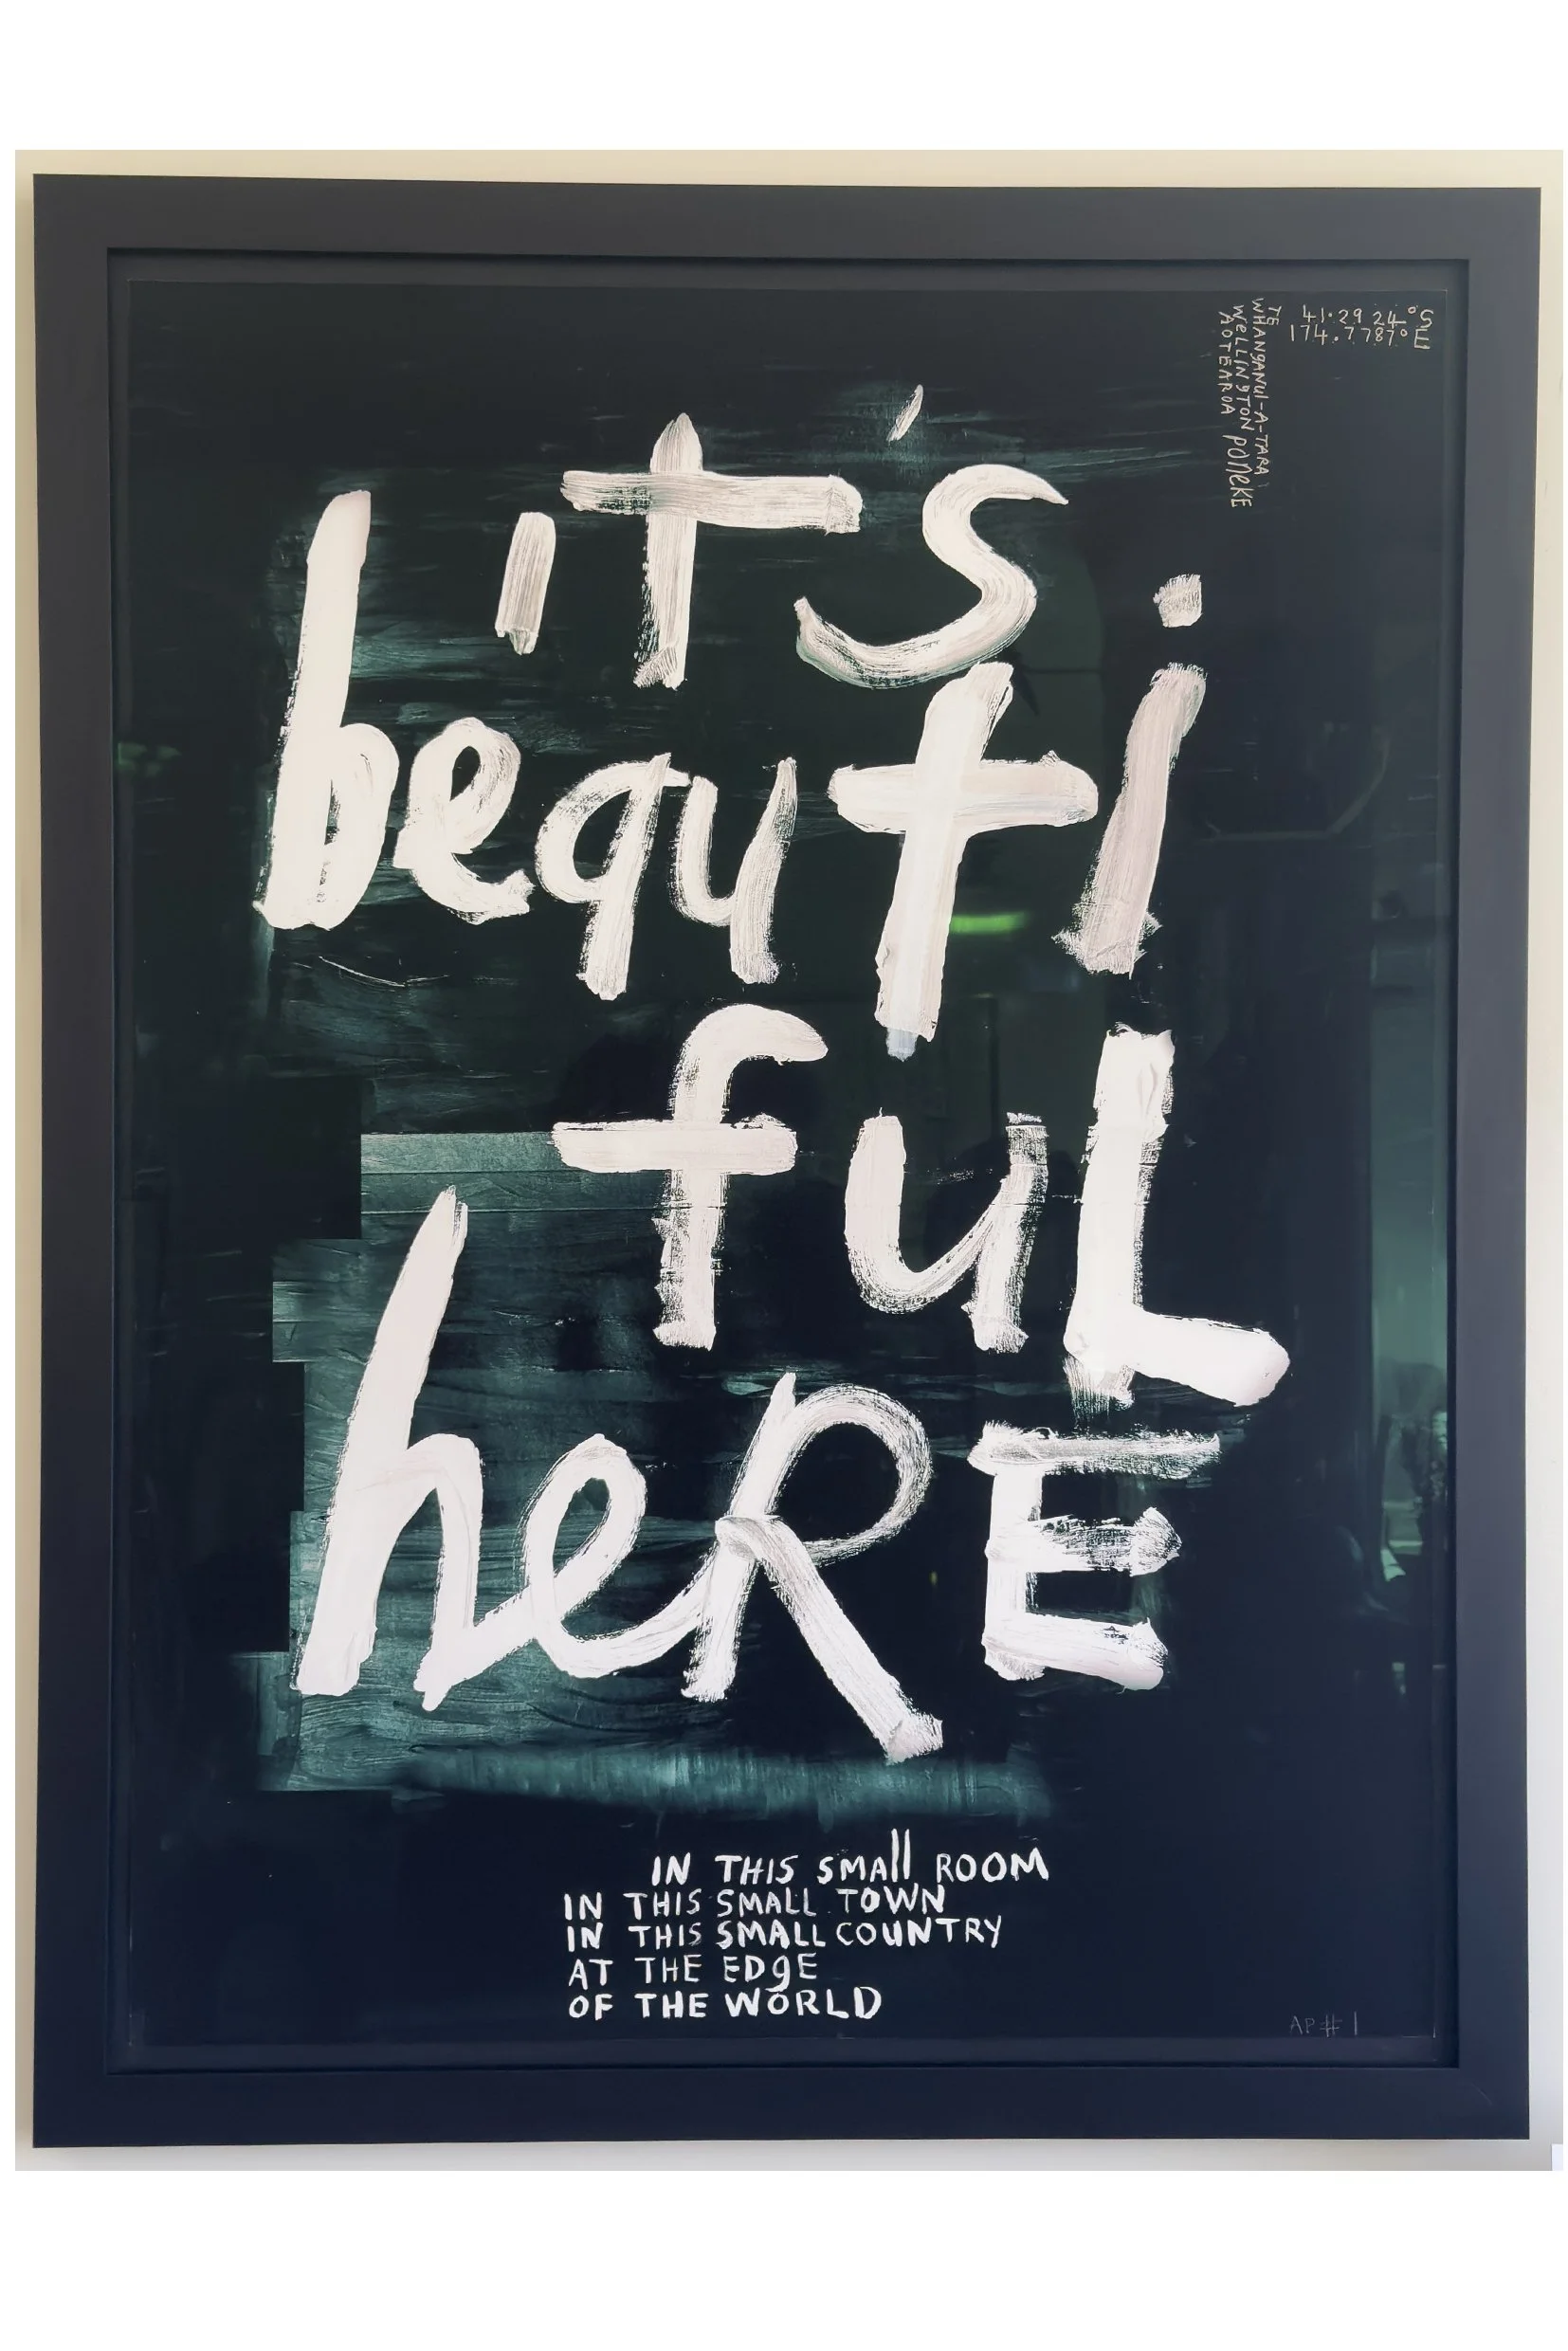 41.2924°S
174.7787°E
TE
WHANGANUI-A-TARA
WELLINGTON PŌNEKE
AOTEAROA
it's
beauti
fuL
heRE
IN THIS SMall ROOM
IN THIS SMALL TOWN
IN THIS SMALL COUNTRY
AT THE EDgE
OF THE WORLD
AP#1